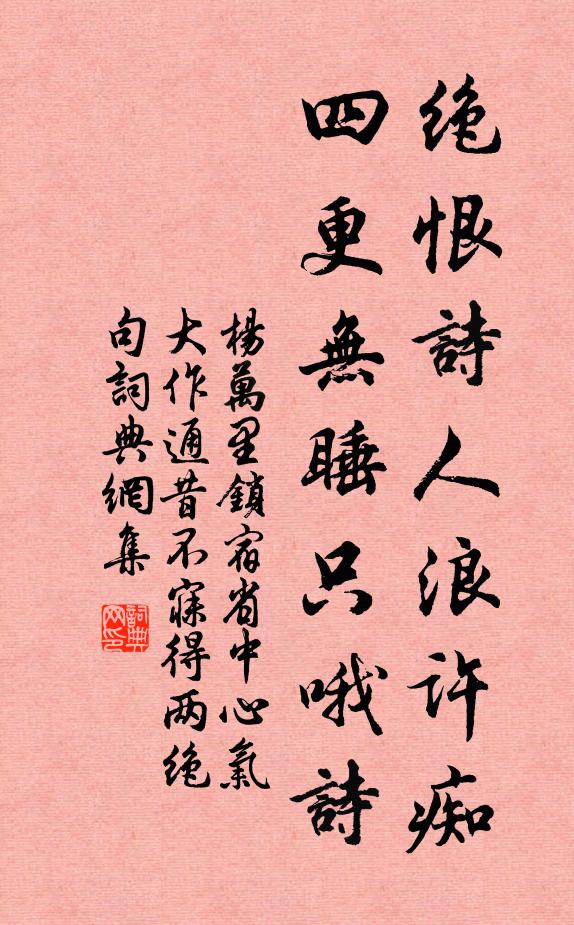 绝恨詩人浪許痴
四更無睡只哦詩
楊萬里鎖宿省中心氣
大作通昔不寐得两绝
句詞典網集
詞典
网印